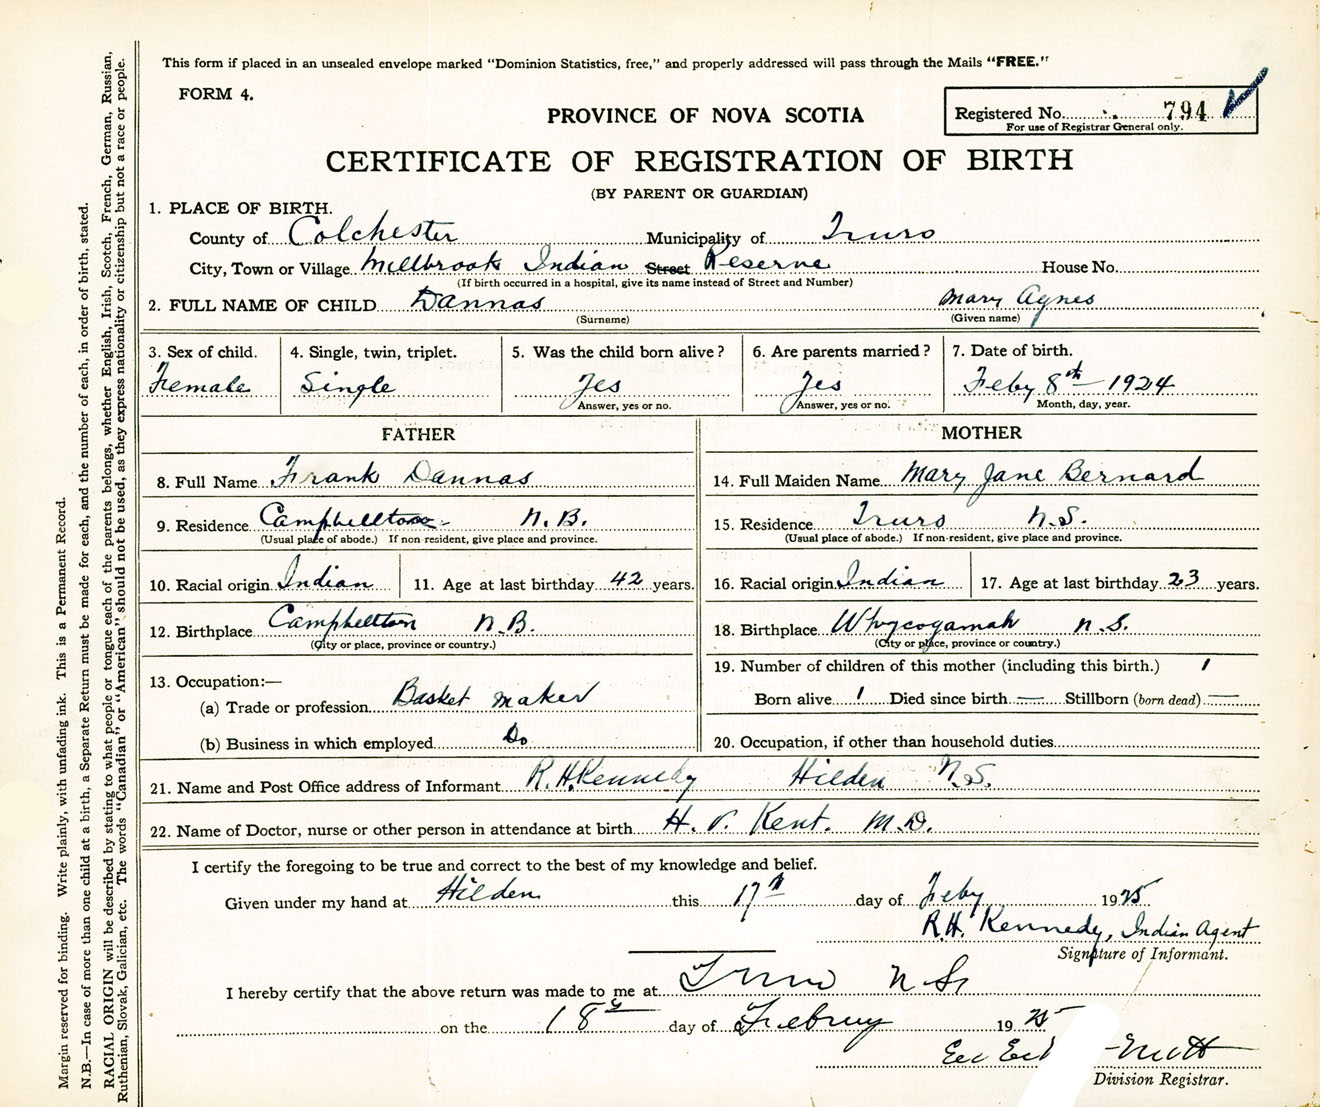 This form if placed in an unsealed envelope marked "Dominion Statistics, free," and properly addressed will pass through the Mails "FREE."
FORM 4.
PROVINCE OF NOVA SCOTIA
Registered No. 794
For use of Registrar General only.
CERTIFICATE OF REGISTRATION OF BIRTH
(BY PARENT OR GUARDIAN)
1. PLACE OF BIRTH.
County of Colchester Municipality of Truro
City, Town or Village Millbrook Indian Street Reserve House No.
(If birth occurred in a hospital, give its name instead of Street and Number)
2. FULL NAME OF CHILD Dannas Mary Agnes
(Surname) (Given name)
3. Sex of child. 4. Single, twin, triplet. 5. Was the child born alive? 6. Are parents married? 7. Date of birth.
Female Single Yes Yes Feby 8th 1924
Answer, yes or no. Answer, yes or no. Month, day, year.
FATHER MOTHER
8. Full Name Frank Dannas 14. Full Maiden Name Mary Jane Bernard
9. Residence Campbellton N.B. 15. Residence Truro N.S.
(Usual place of abode.) If non-resident, give place and province. (Usual place of abode.) If non-resident, give place and province.
10. Racial origin Indian 11. Age at last birthday 42 years. 16. Racial origin Indian 17. Age at last birthday 23 years.
12. Birthplace Campbellton N.B. 18. Birthplace Whycogamah N.S.
(City or place, province or country.) (City or place, province or country.)
13. Occupation:— 19. Number of children of this mother (including this birth.) 1
(a) Trade or profession Basket maker Born alive 1 Died since birth — Stillborn (born dead) —
(b) Business in which employed Do 20. Occupation, if other than household duties
21. Name and Post Office address of Informant R.H. Kennedy Hilden N.S.
22. Name of Doctor, nurse or other person in attendance at birth H. V. Kent. M.D.
I certify the foregoing to be true and correct to the best of my knowledge and belief.
Given under my hand at Hilden this 17th day of Feby 1925
R.H. Kennedy, Indian Agent
Signature of Informant.
I hereby certify that the above return was made to me at Truro N S
on the 18 day of Februy 1925
Division Registrar.
Margin reserved for binding. Write plainly, with unfading ink. This is a Permanent Record.
N.B.—In case of more than one child at a birth, a Separate Return must be made for each, and the number of each, in order of birth, stated.
RACIAL ORIGIN will be described by stating to what people or tongue each of the parents belongs, whether English, Irish, Scotch, French, German, Russian,
Ruthenian, Slovak, Galician, etc. The words "Canadian" or "American" should not be used, as they express nationality or citizenship but not a race or people.